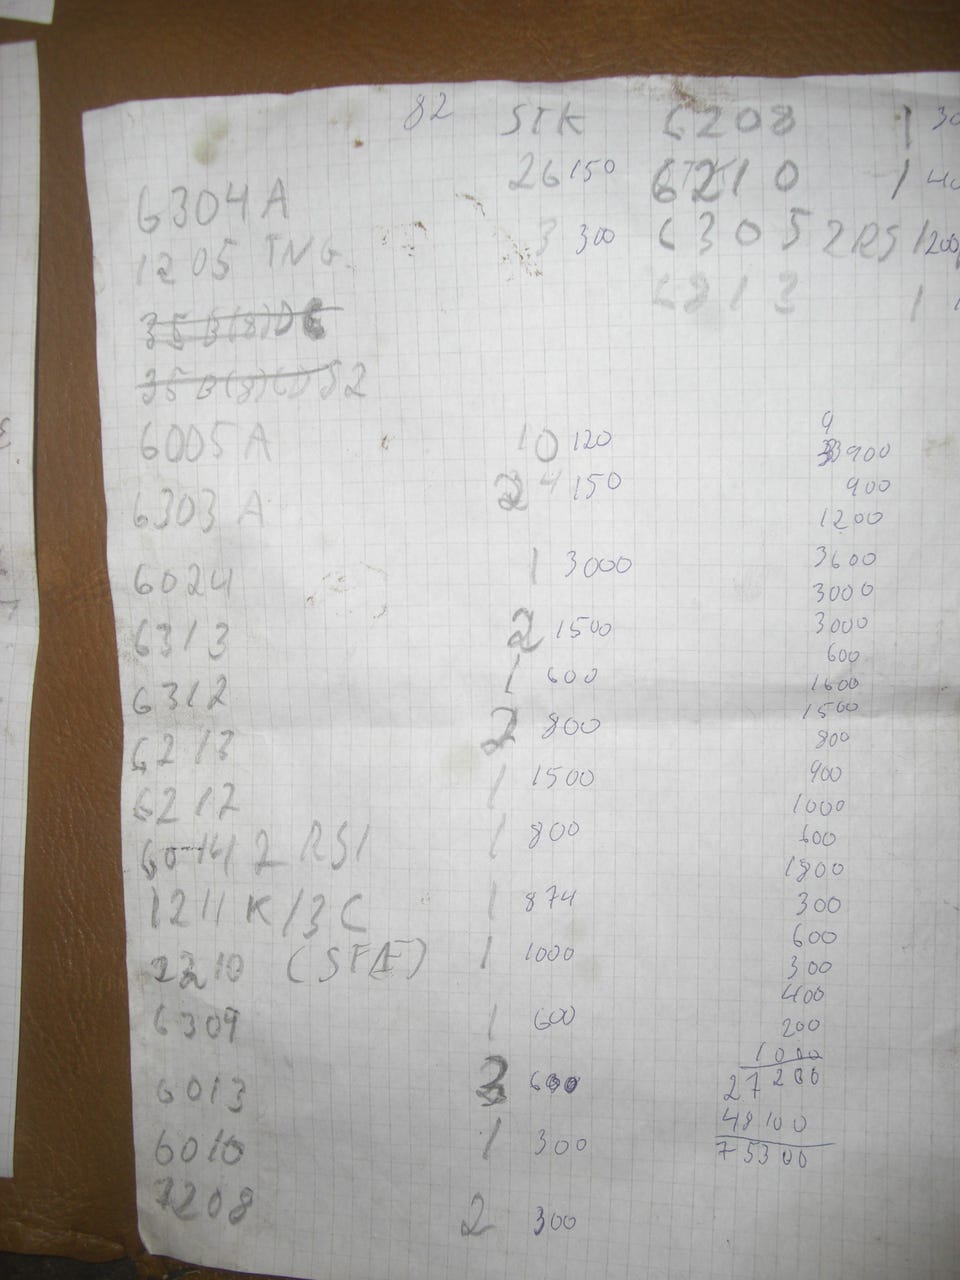 82 STK 6208 1 30
26 150 6210 1 40
6304 A
3 300 6305 2RS 1 200
1205 TNG
1
35
35 52
6005 A 10 120
9
3900
6303 A 24 150 900
1200
6024 1 3000 3600
3000
6313 2 1500 3000
600
6312 1 600 1600
1500
6213 2 800 800
6212 1 1500 900
1000
2 RS1 1 800 600
1800
1211 K/3C 1 874 300
600
2210 1 1000 300
400
6309 1 600 200
1000
6013 3 600 27200
48100
6010 1 300 75300
7208 2 300